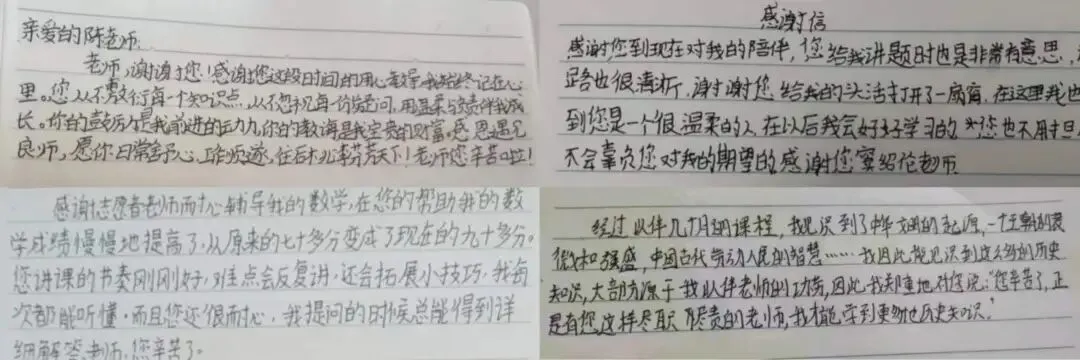 亲爱的陈老师:
老师,谢谢您!感谢您这段时间的用心教导,我始终记在心
里。您从不敷衍每一个知识点,从不忽视每一份疑问,用温柔与责任伴我成
长。你的鼓励是我前进的动力,你的教诲是我宝贵的财富。感恩遇见
良师,愿你日常舒心,工作顺遂,往后桃李芬芳天下!老师您辛苦啦!
感谢信
感谢您到现在对我的陪伴,您给我讲题时也是非常有意思,
路也很清晰,谢谢您给我的头活打开了一扇窗,在这里我也
到您是一个很温柔的人,在以后我会好好学习的,对您也不用担
不会辜负您对我的期望的感谢您窦绍伦老师
感谢志愿者老师耐心辅导我的数学,在您的帮助我的数
学成绩慢慢地提高了,从原来的七十多分变成了现在的九十多分。
您讲课的节奏刚刚好,难点会反复讲,还会拓展小技巧,我每
次都能听懂,而且您还很耐心,我提问的时候总能得到详
细解答老师,您辛苦了。
经过以伴几个月的课程,我见识到了中华文明的起源,一个王朝的衰
微和强盛,中国古代劳动人民的智慧……我因此能见识到这么多的历史
知识,大部分源于我以伴老师的功劳,因此我郑重地对您说:"您辛苦了,正
是有您这样尽职尽责的老师,我才能学到更多地历史知识。"